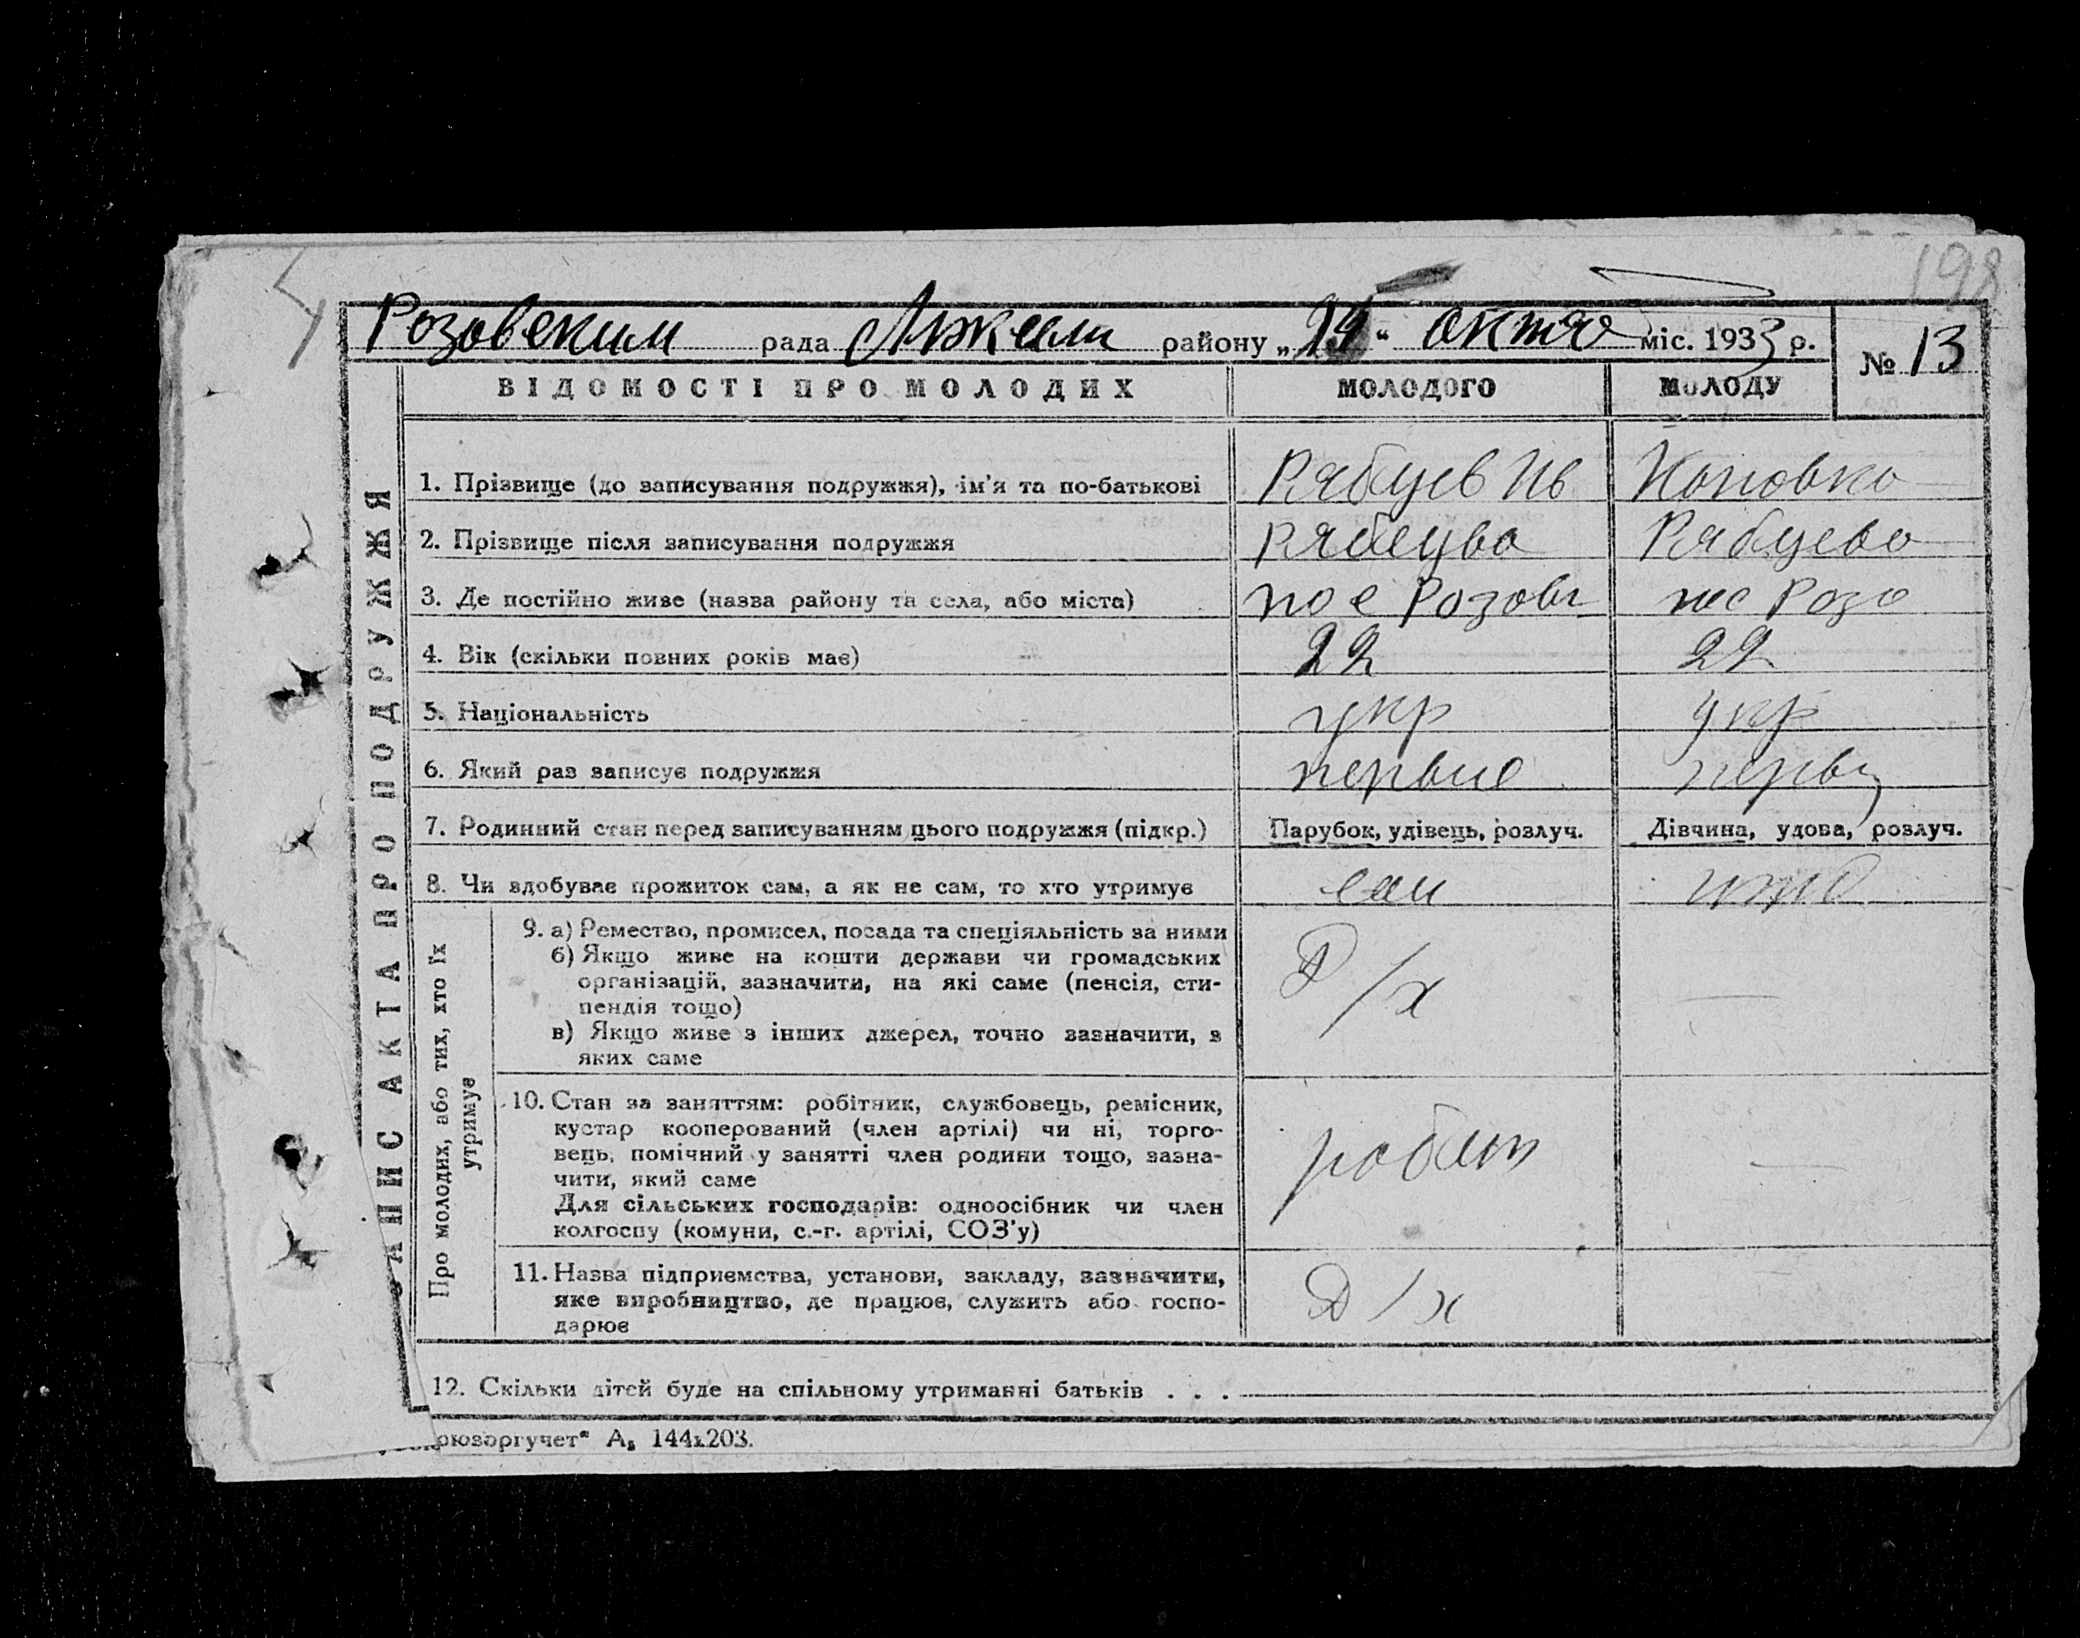 198
Розовским рада района „29“ октяб міс. 1933 р. № 13
ВІДОМОСТІ ПРО МОЛОДИХ МОЛОДОГО МОЛОДУ
ЗАПИС АКТА ПРО ПОДРУЖЖЯ
1. Прізвище (до записування подружжя), ім'я та по-батькові Рябцев Ив
2. Прізвище після записування подружжя Рябцева
3. Де постійно живе (назва району та села, або міста) Розовк Розо
4. Вік (скільки повних років має) 22 22
5. Національність укр укр
6. Який раз записує подружжя первые первы
7. Родинний стан перед записуванням цього подружжя (підкр.) Парубок, удівець, розлуч. Дівчина, удова, розлуч.
8. Чи здобуває прожиток сам, а як не сам, то хто утримує сам
Про молодих, або тих, хто їх утримує
9. а) Ремество, промисел, посада та спеціяльність за ними
б) Якщо живе на кошти держави чи громадських
організацій, зазначити, на які саме (пенсія, сти-
пендія тощо)
в) Якщо живе з інших джерел, точно зазначити, з
яких саме
10. Стан за заняттям: робітник, службовець, ремісник,
кустар кооперований (член артілі) чи ні, торго-
вець, помічний у занятті член родини тощо, зазна-
чити, який саме
Для сільських господарів: одноосібник чи член
колгоспу (комуни, с.-г. артілі, СОЗ'у)
11. Назва підприємства, установи, закладу, зазначити,
яке виробництво, де працює, служить або госпо-
дарює
12. Скільки дітей буде на спільному утриманні батьків . . .
144х203.